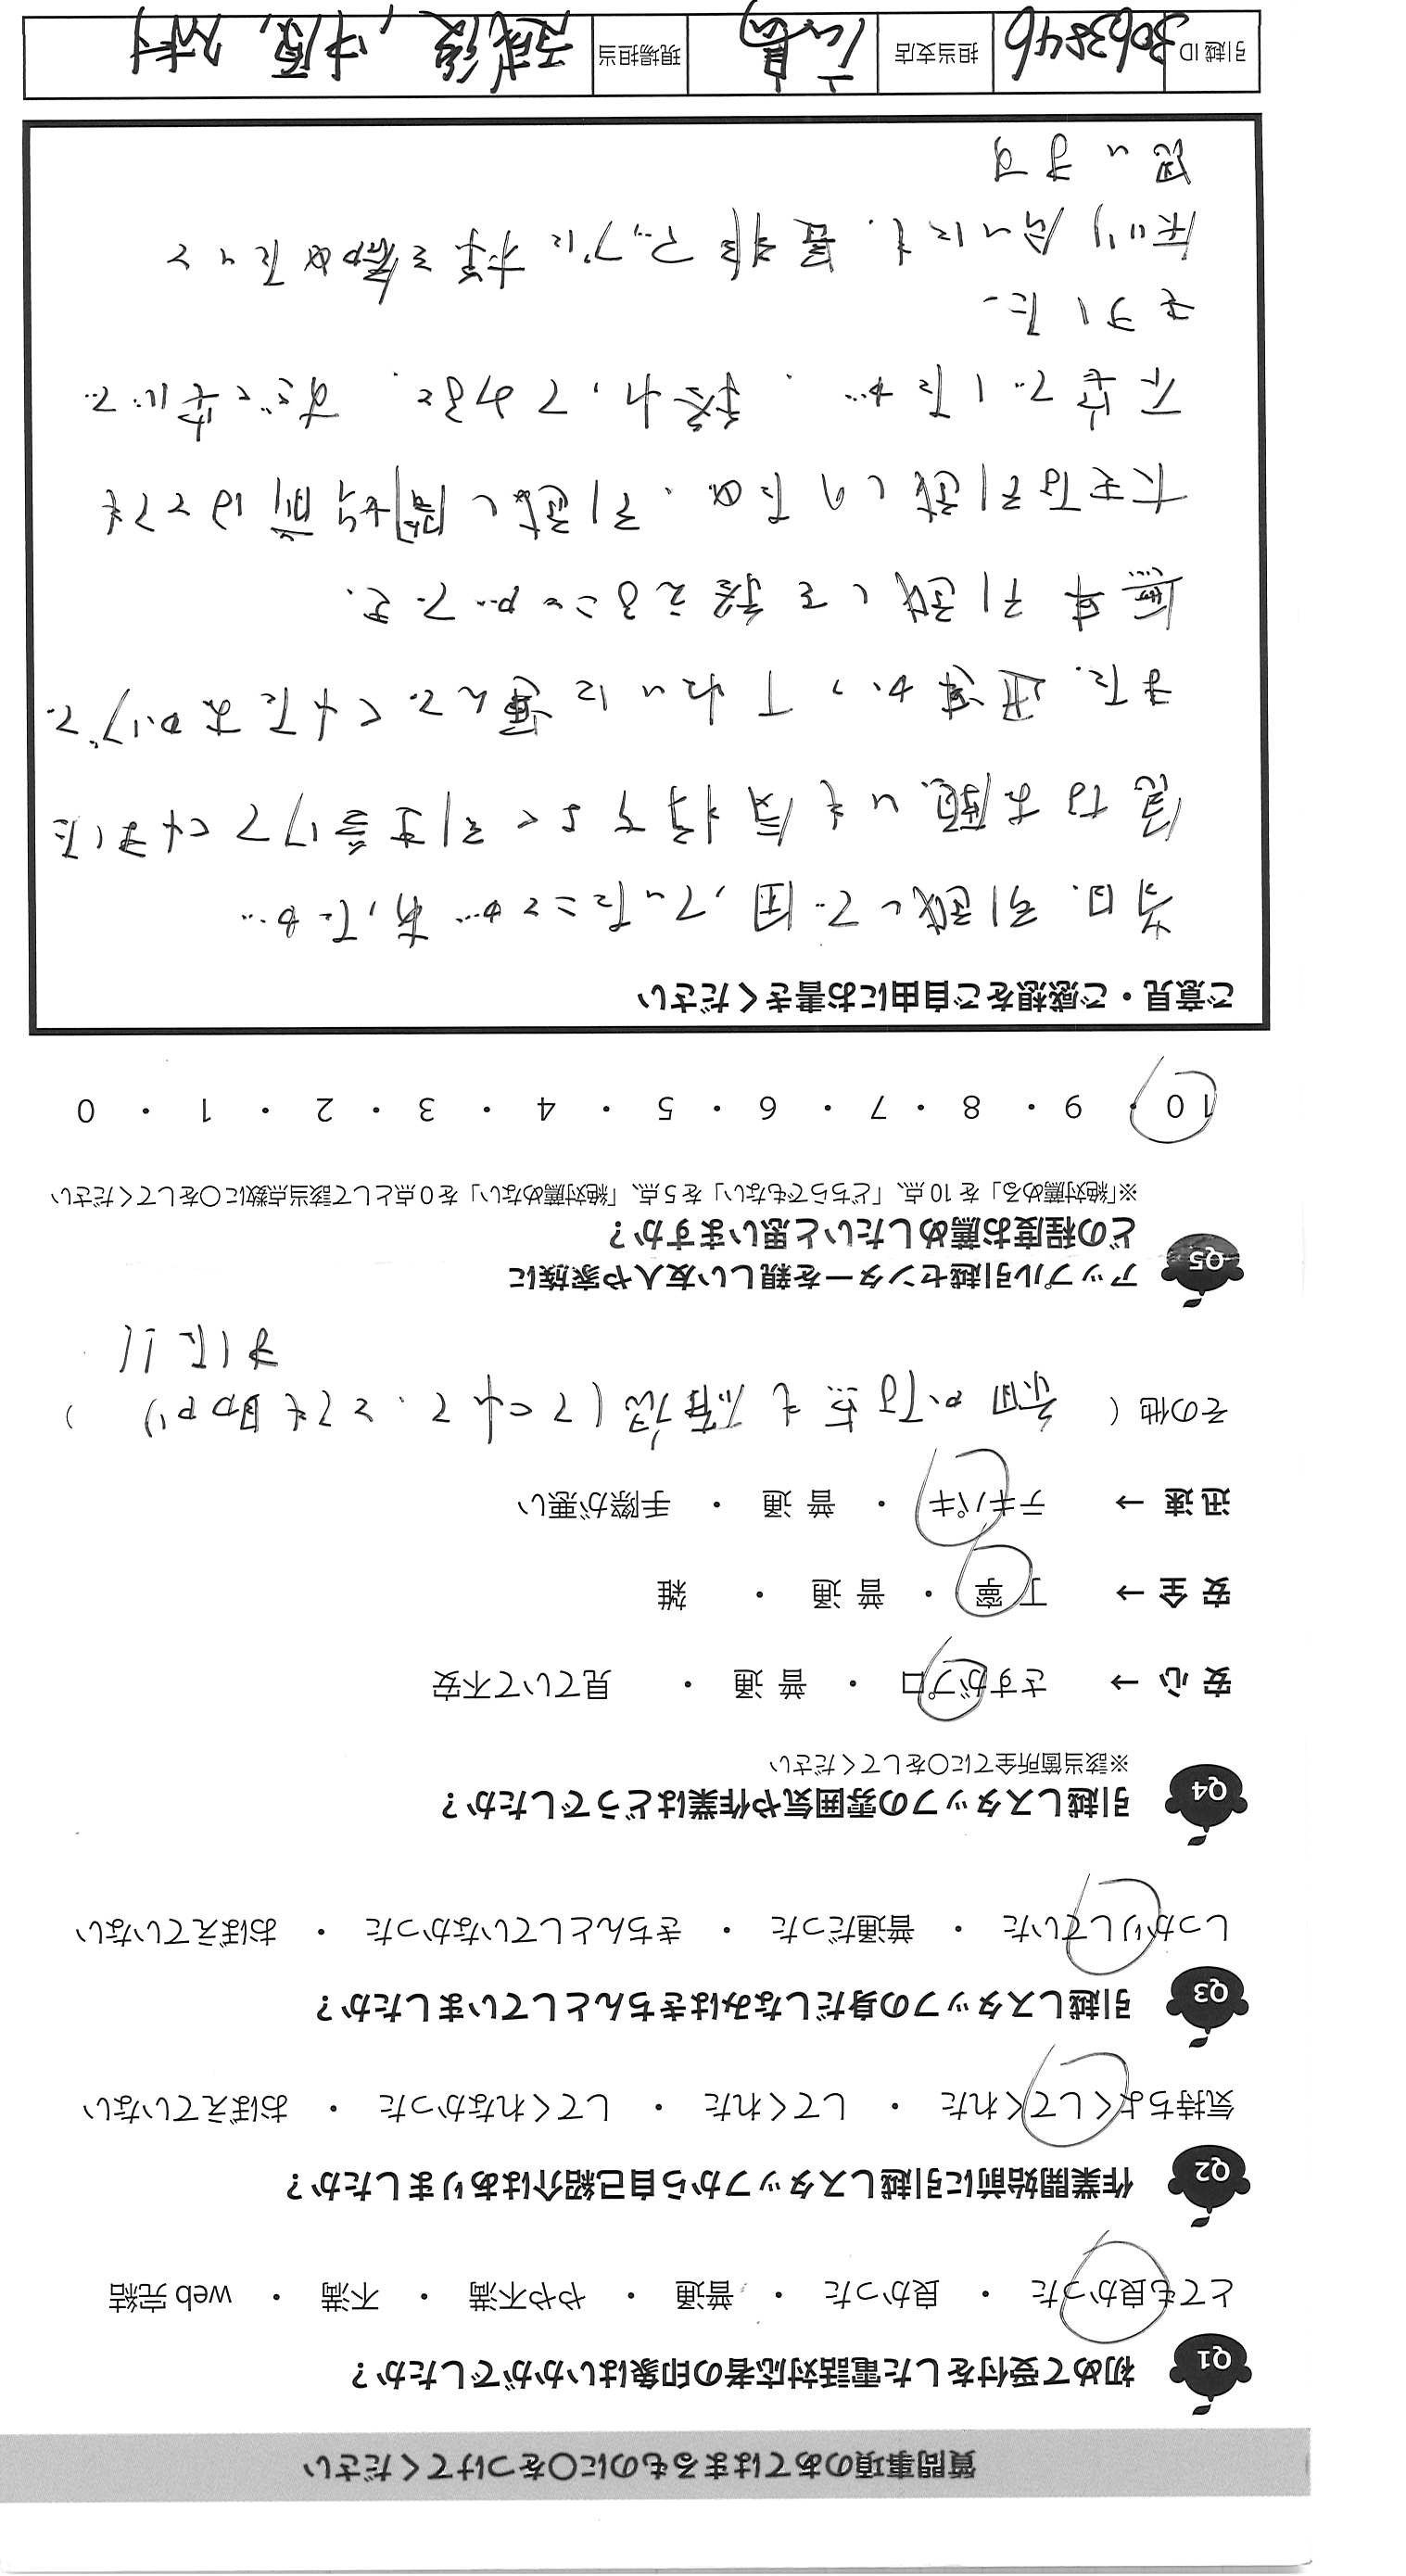 質問事項のあてはまるものに○をつけてください
Q1 初めて受付をした電話対応者の印象はいかがでしたか?
とても良かった ・ 良かった ・ 普通 ・ やや不満 ・ 不満 ・ web 完結
Q2 作業開始前に引越しスタッフから自己紹介はありましたか?
気持ちよくしてくれた ・ してくれた ・ してくれなかった ・ おぼえていない
Q3 引越しスタッフの身だしなみはきちんとしていましたか?
しっかりしていた ・ 普通だった ・ きちんとしていなかった ・ おぼえていない
Q4 引越しスタッフの雰囲気や作業はどうでしたか?
※該当箇所全てに○をしてください
安 心 → さすがプロ ・ 普 通 ・ 見ていて不安
安 全 → 丁 寧 ・ 普 通 ・ 雑
迅 速 → テキパキ ・ 普 通 ・ 手際が悪い
その他 ( 希望や不な点も確認してくれて、とても助かり )
ました!!
Q5 アップル引越センターを親しい友人や家族に
どの程度お薦めしたいと思いますか?
※「絶対薦める」を 10 点、「どちらでもない」を 5 点、「絶対薦めない」を 0 点として該当点数に○をしてください
10 ・ 9 ・ 8 ・ 7 ・ 6 ・ 5 ・ 4 ・ 3 ・ 2 ・ 1 ・ 0
ご意見・ご感想をご自由にお書きください
当日、引越しで困っていたことがあったが
急なお願いも気持ちよく引き受けてくれました
また、迅速かつていねいに運んでくれたおかげで
無事引越しを終えることができ、
大変な引越しのため、引越し開始前はとても
不安でしたが、終わってみると、すごく安心で
きました。
知り合いにも、是非アップルに様を薦めたいと
思います
引越 ID 3063846 担当支店 広島 現場担当 、中原、